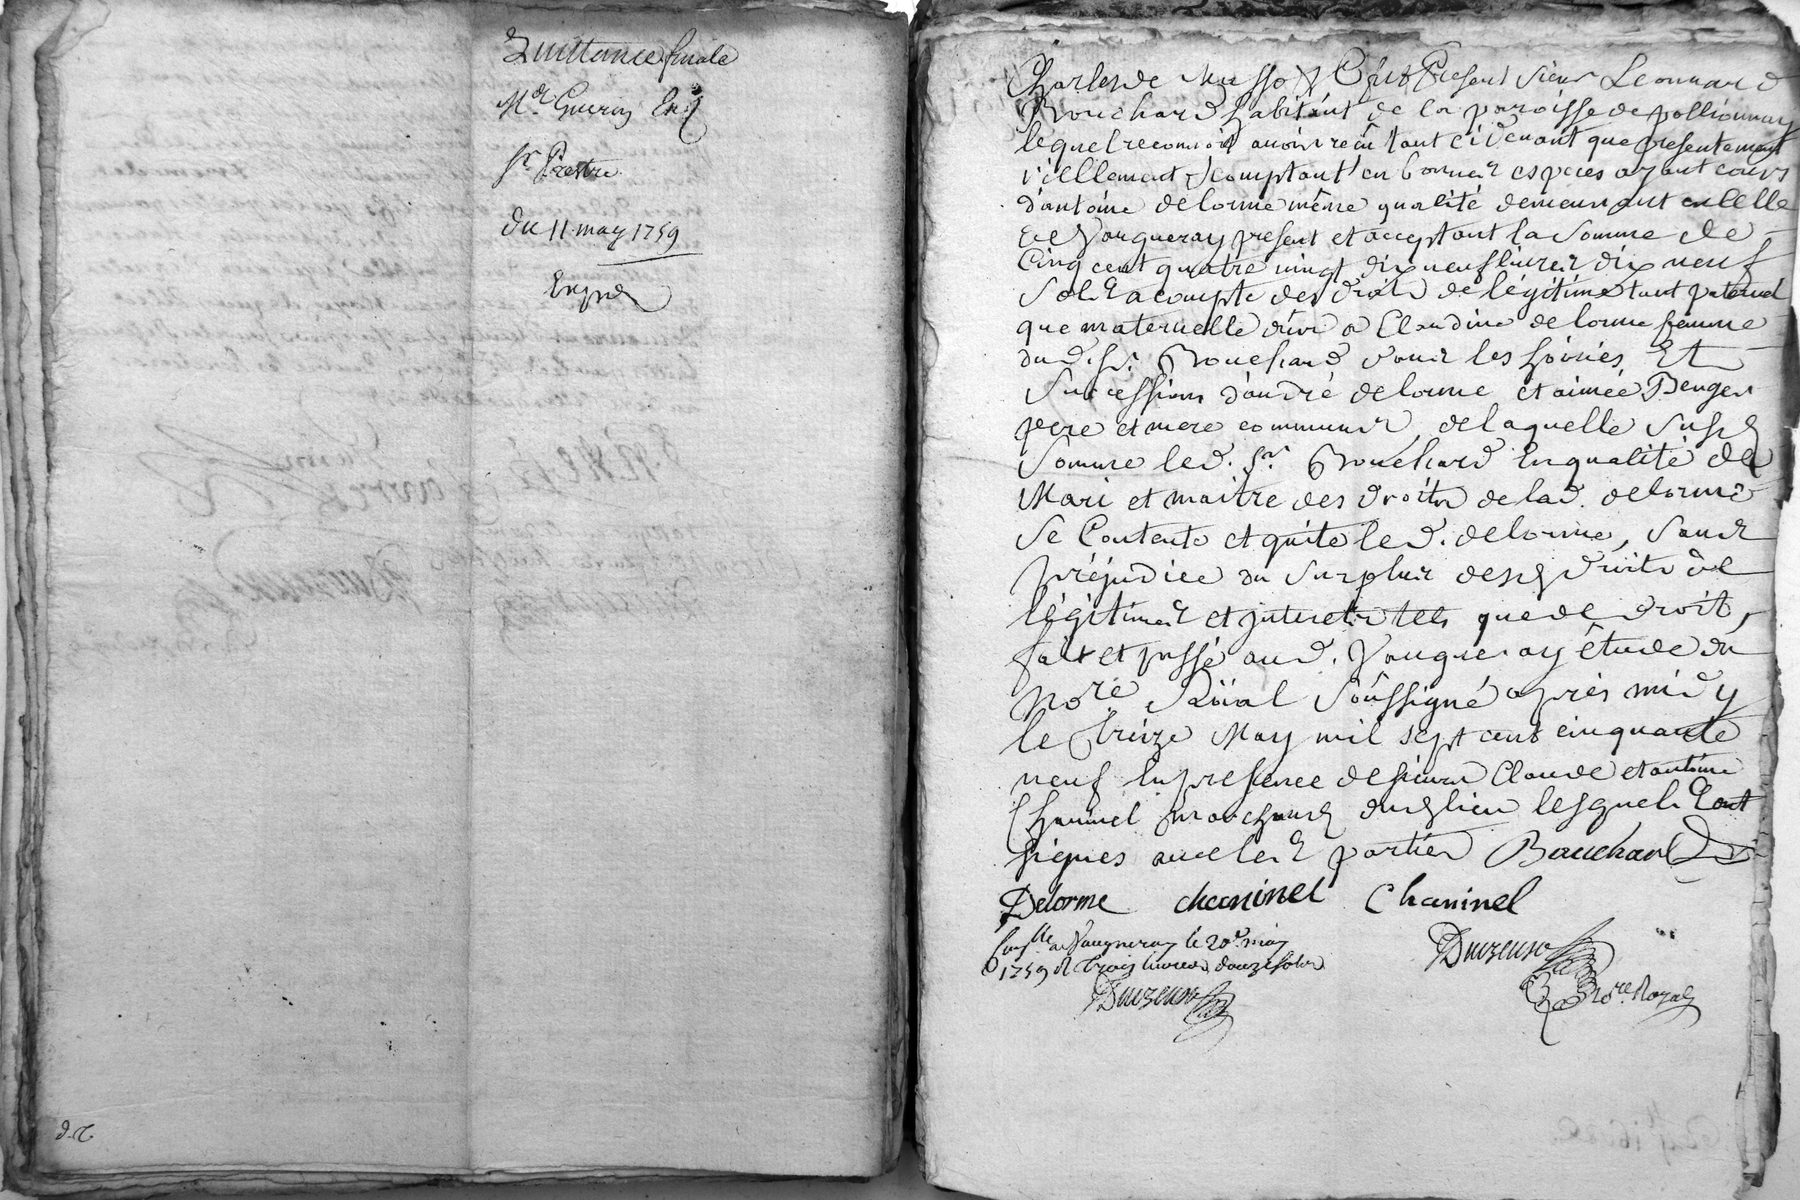 Quittance finale
Mr. Guerin
Sr. Prestre
du 11 may 1759
Exped
d. R.
Charles de Musso & Cy fut Present sieur Leonnard
Bouchard habitant de la paroisse de pollionnay
lequel reconnoit avoir recû tant cidevant que presentement
réellement & comptant en bonnes especes ayant cours
d'antoine delorme même qualité demeurant en celle
de Vaugneray present et acceptant la somme de
Cinq cent quatre vingt dix neuf livres dix neuf
sols a compte des droits de légitime tant paternel
que maternelle dûe a Claudine delorme femme
dud. sr. Bouchard dans les hoiries Et
successions d'andré delorme et aimée Benger
pere et mere communs, de laquelle susd
somme led. sr. Bouchard En qualité de
Mari et maitre des droits de lad. delorme
se Contente et quite led. delorme, sans
préjudice du surplus desd droits de
légitimes et interets tels que de droit,
fait et passé aud. Vaugneray étude du
Nore Roïal soussigné après midy
le treize May mil sept cent cinquante
neuf En presence de sieurs Claude et antoine
Chaninel marchands dud lieu lesquels ont
signés avec les parties Bouchard
Delorme chaninel Chaninel
Conlle a Vaugneray le 20e may
1759 R trois livres douze sols
Duizeuso
Duizeuso
Nore Royal